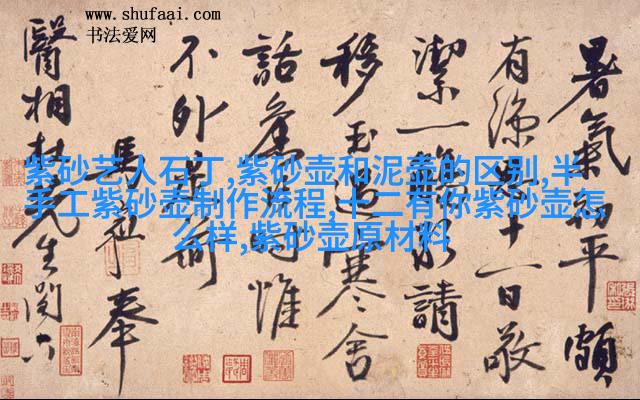 www.shufaai.com
书法爱网
紫砂艺人石丁,紫砂壶和泥壶的区别,半
手工紫砂壶制作流程,十二有你紫砂壶怎
么样,紫砂壶原材料
暑氣初平頗
有涼十一日敬
潔一請
移玉過寒舍
話舊惟
不外
奉
醫相杜先生閣下